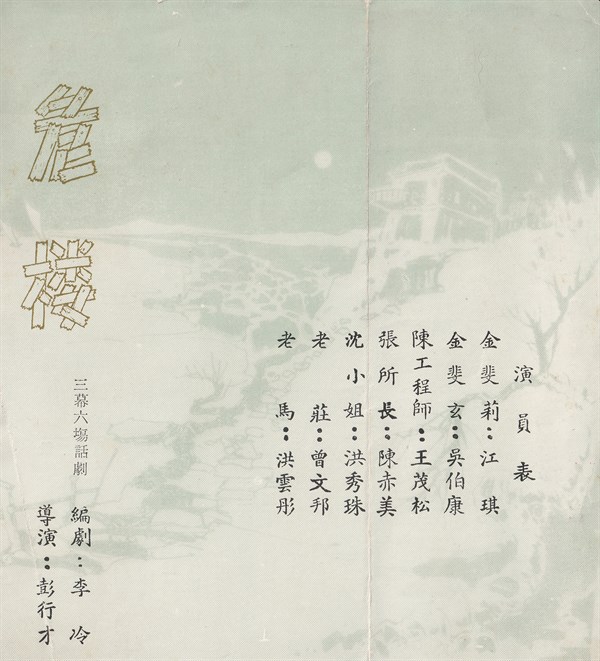 演員表
金斐莉：江琪
金斐玄：吳伯康
陳工程師：王茂松
張所長：陳赤美
沈小姐：洪秀珠
老莊：曾文邦
老馬：洪雲彤
危樓
三幕六場話劇
編劇：李冷
導演：彭行才